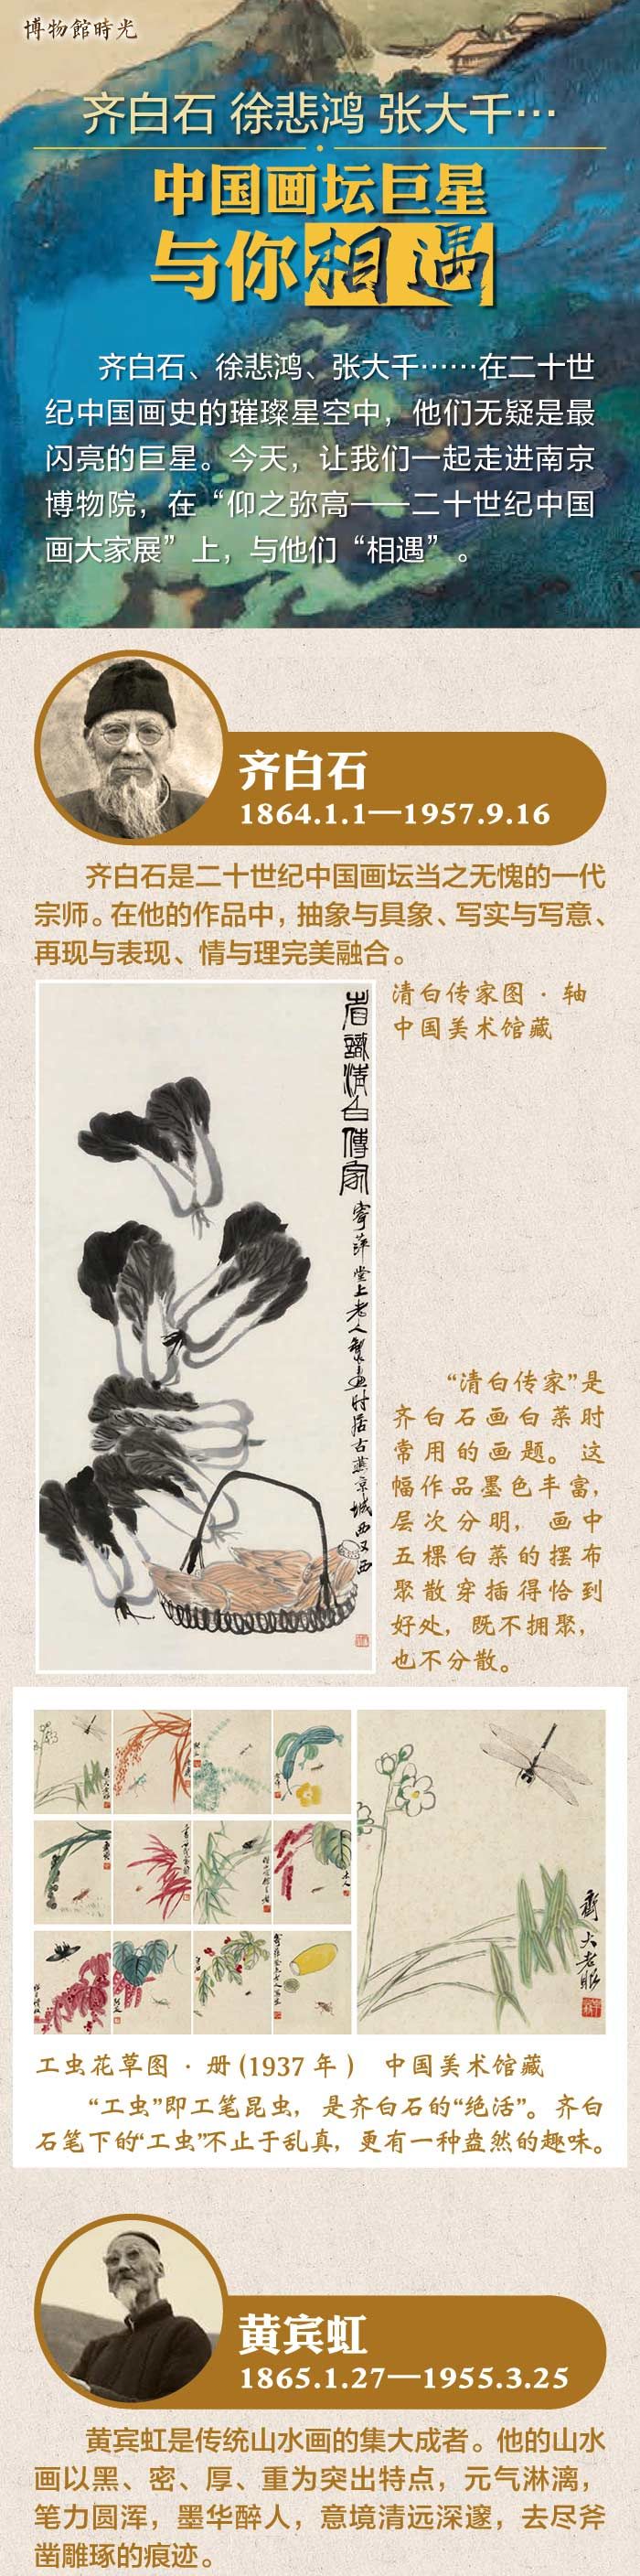 博物館時光
齐白石 徐悲鸿 张大千…
中国画坛巨星
与你相遇
齐白石、徐悲鸿、张大千……在二十世
纪中国画史的璀璨星空中，他们无疑是最
闪亮的巨星。今天，让我们一起走进南京
博物院，在“仰之弥高——二十世纪中国
画大家展”上，与他们“相遇”。
齐白石
1864.1.1—1957.9.16
齐白石是二十世纪中国画坛当之无愧的一代
宗师。在他的作品中，抽象与具象、写实与写意、
再现与表现、情与理完美融合。
清白传家图·轴
中国美术馆藏
“清白传家”是
齐白石画白菜时
常用的画题。这
幅作品墨色丰富，
层次分明，画中
五棵白菜的摆布
聚散穿插得恰到
好处，既不拥聚，
也不分散。
工虫花草图·册(1937年) 中国美术馆藏
“工虫”即工笔昆虫，是齐白石的“绝活”。齐白
石笔下的“工虫”不止于乱真，更有一种盎然的趣味。
黄宾虹
1865.1.27—1955.3.25
黄宾虹是传统山水画的集大成者。他的山水
画以黑、密、厚、重为突出特点，元气淋漓，
笔力圆浑，墨华醉人，意境清远深邃，去尽斧
凿雕琢的痕迹。